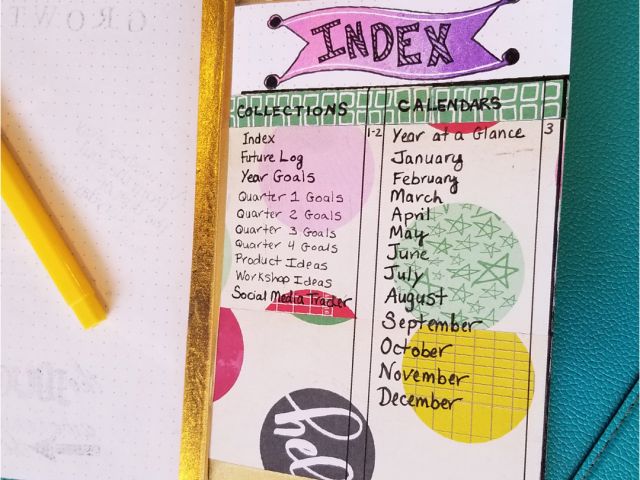 GROWT
INDEX
COLLECTIONS
Index
1-2
Future Log
Year Goals
Quarter 1 Goals
Quarter 2 Goals
Quarter 3 Goals
Quarter 4 Goals
Product Ideas
Workshop Ideas
Social Media Tracker
hel
CALENDARS
Year at a Glance
3
January
February
March
April
May
June
July
August
September
October
November
December